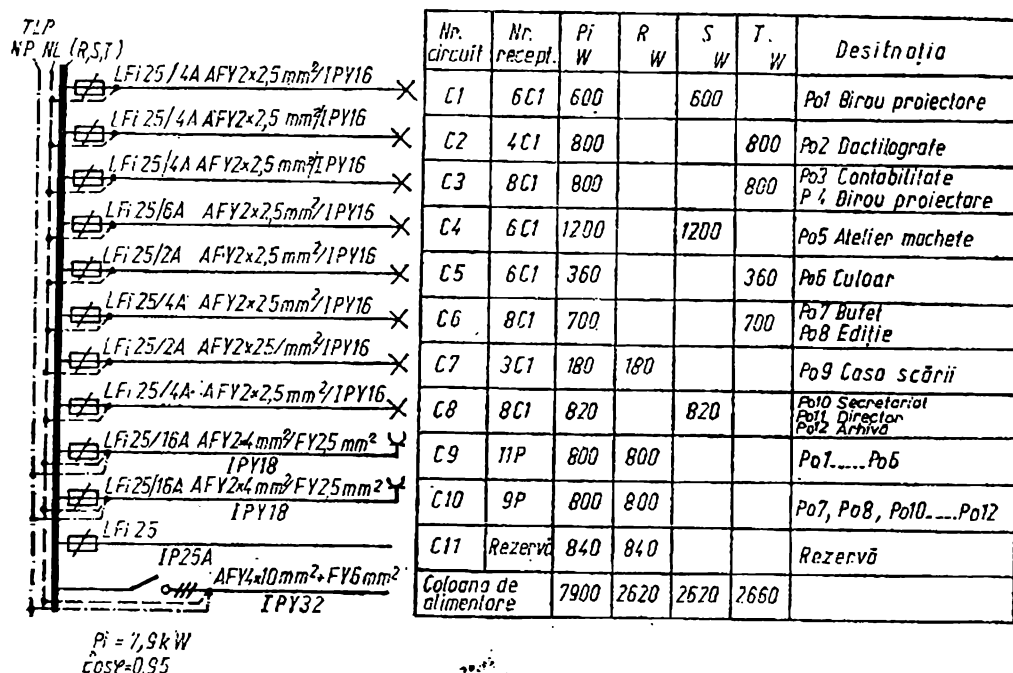 TLP
NP NL (R,S,T)
LFi 25/4A AFY2×2,5 mm²/IPY16
LFi 25/4A AFY2×2,5 mm²/IPY16
LFi 25/4A AFY2×2,5 mm²/IPY16
LFi 25/6A AFY2×2,5mm²/IPY16
LFi 25/2A AFY2×2,5mm²/IPY16
LFi 25/4A AFY2×25mm²/IPY16
LFi 25/2A AFY2×25/mm²/IPY16
LFi 25/4A AFY2×2,5mm²/IPY16
LFi 25/16A AFY2×4mm²/FY25mm²
IPY18
LFi 25/16A AFY2×4mm²/FY25mm²
IPY18
LFi 25
IP25A
AFY4×10mm²+FY6mm²
IPY32
Pi = 7,9kW
cosφ=0,95
Nr. circuit Nr. recept. Pi W R W S W T. W Desitnația
C1 6C1 600 600 Po1 Birou proiectare
C2 4C1 800 800 Po2 Dactilografe
C3 8C1 800 800 Po3 Contabilitate
P 4 Birou proiectare
C4 6C1 1200 1200 Po5 Atelier machete
C5 6C1 360 360 Po6 Culoar
C6 8C1 700 700 Po7 Bufet
Po8 Ediție
C7 3C1 180 180 Po9 Casa scării
C8 8C1 820 820 Po10 Secretariat
Po11 Director
Po12 Arhivă
C9 11P 800 800 Po1.....Po6
C10 9P 800 800 Po7, Po8, Po10....Po12
C11 Rezervă 840 840 Rezervă
Coloana de alimentare 7900 2620 2620 2660